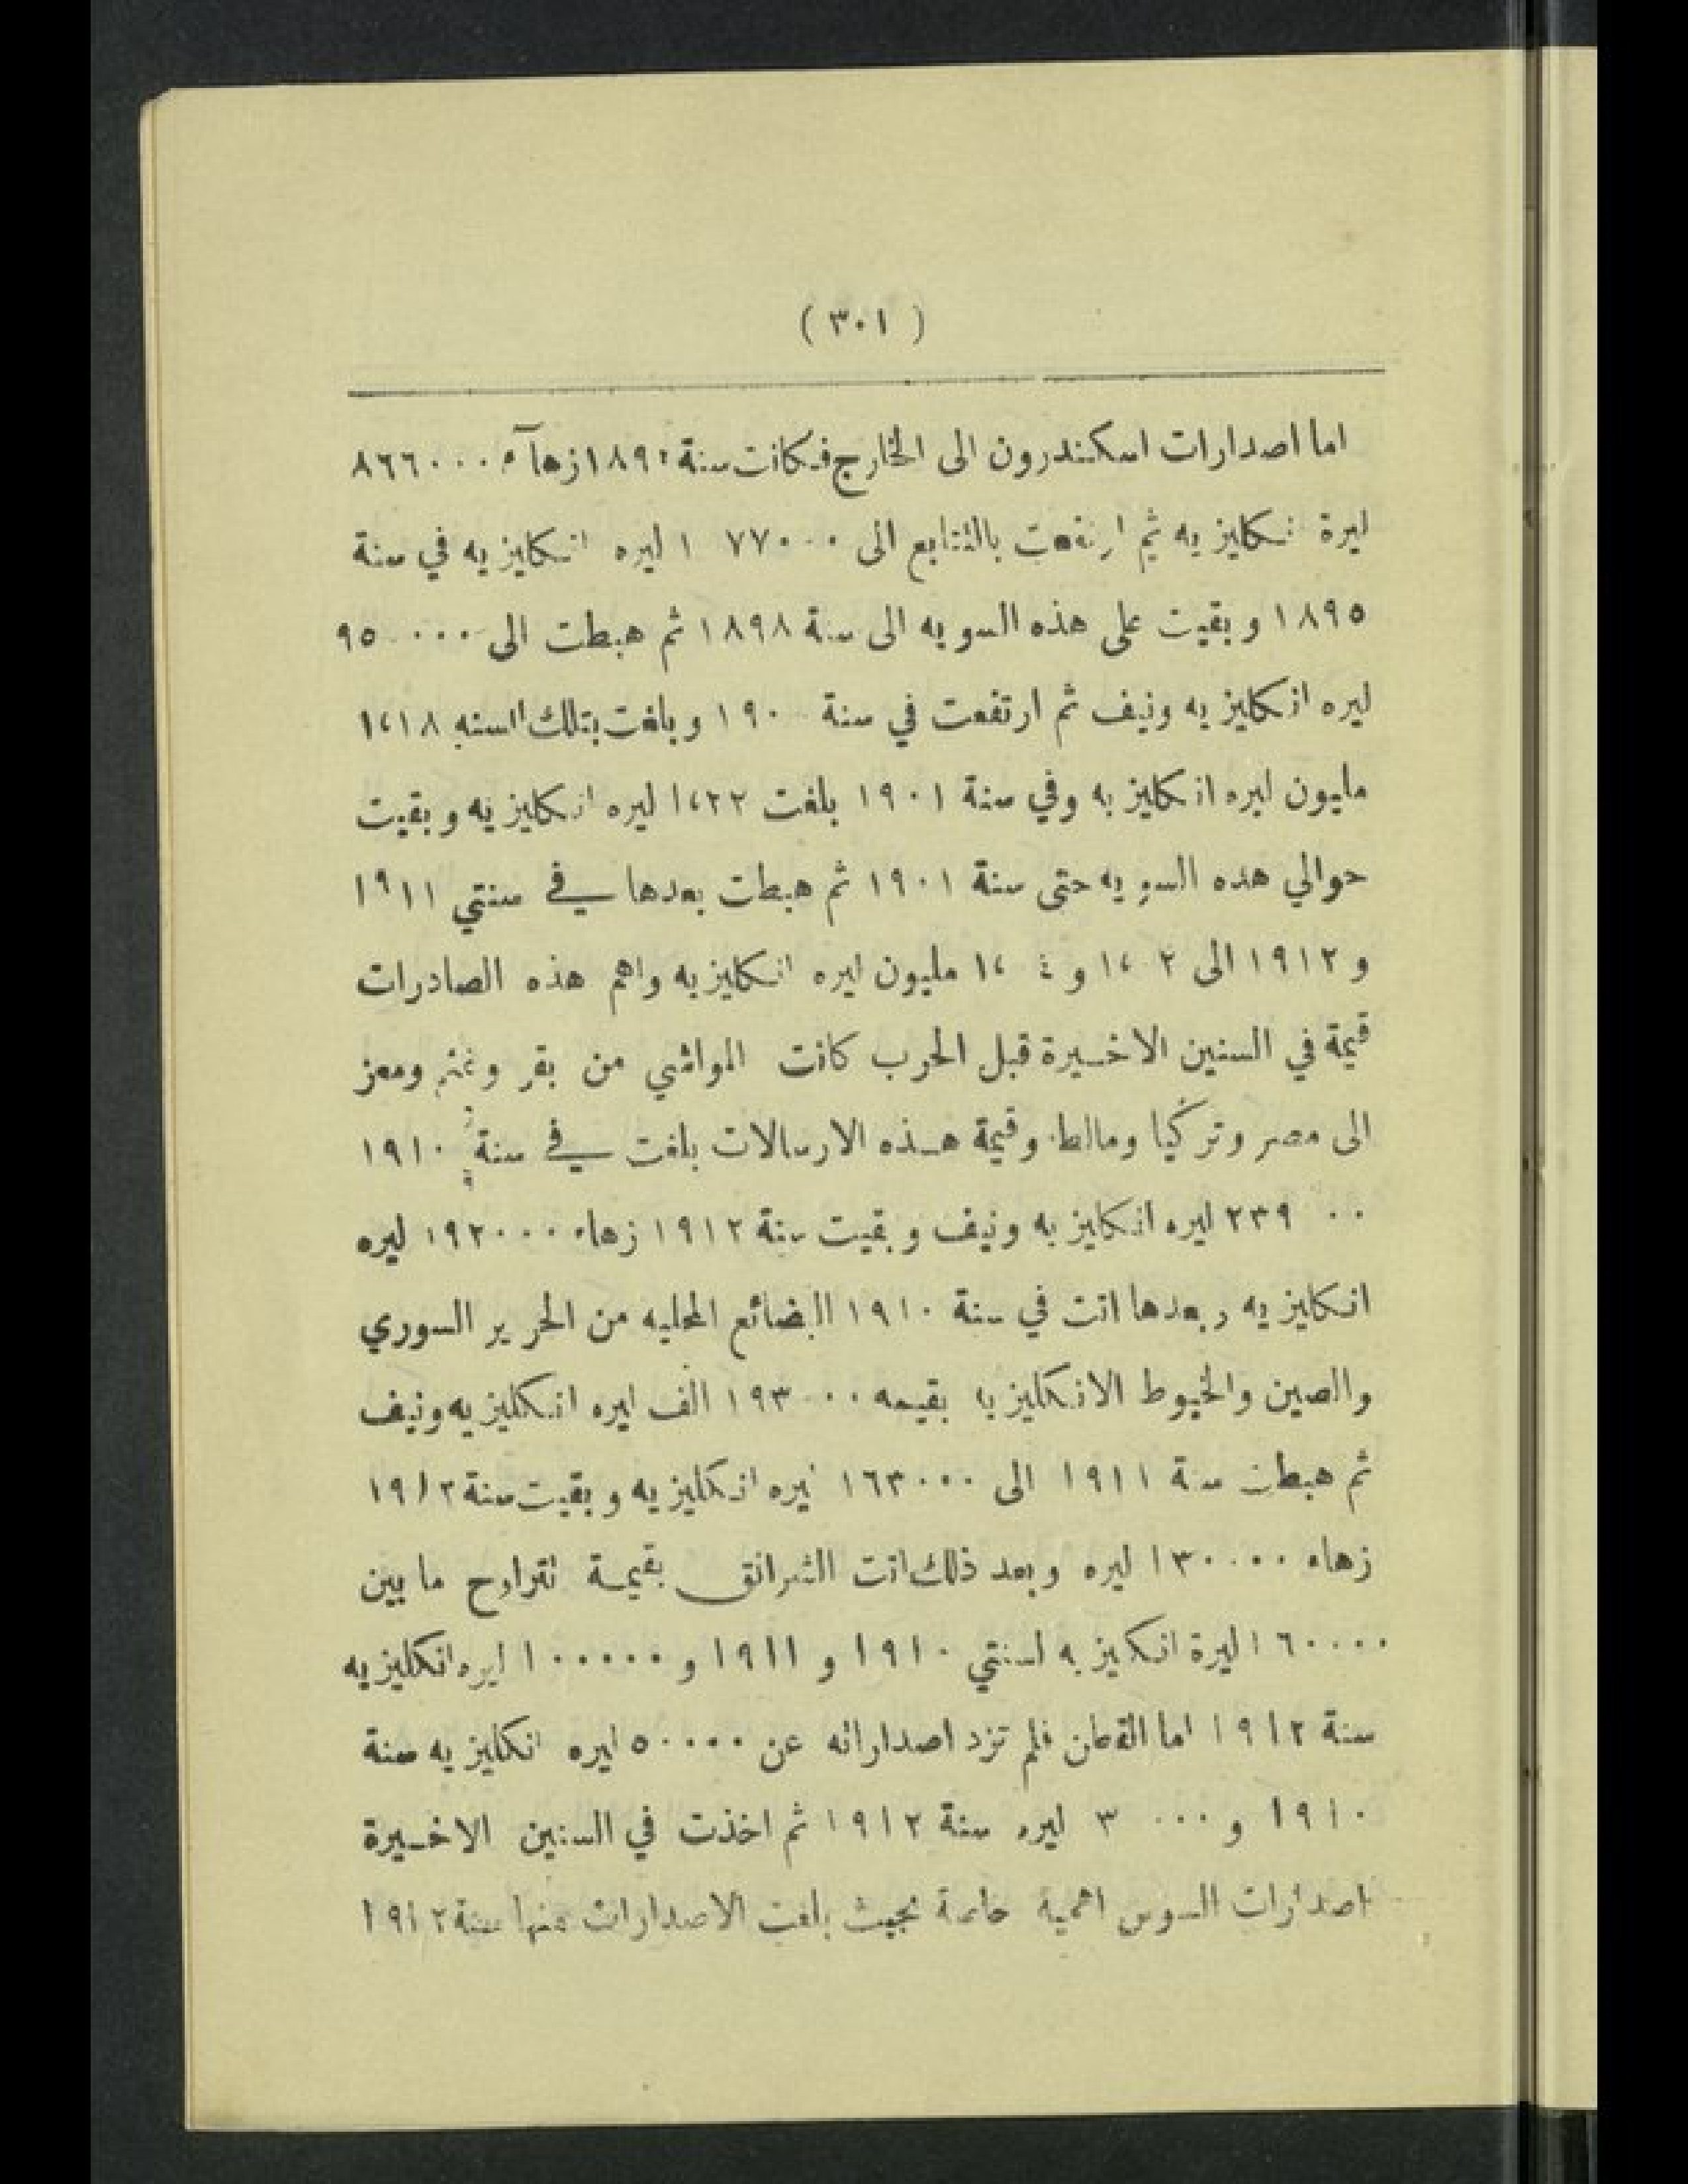 ( ٣٠١ )
اما اصدارات اسكندرون الى الخارج فكانت سنة ١٨٩ زهآء ٨٦٦٠٠٠
ليرة انكليزيه ثم ارتفعت بالتتابع الى ٧٧٠٠٠ ١ ليره انكليزيه في سنة
١٨٩٥ وبقيت على هذه السويه الى سنة ١٨٩٨ ثم هبطت الى ٩٥٠٠٠٠
ليره انكليزيه ونيف ثم ارتفعت في سنة ١٩٠٠ وبلغت بتلك السنه ١،١٨
مليون ليره انكليزيه وفي سنة ١٩٠١ بلغت ١،٢٢ ليره انكليزيه وبقيت
حوالي هذه السويه حتى سنة ١٩٠١ ثم هبطت بعدها في سنتي ١٩١١
و ١٩١٢ الى ١،٠٢ و ١،٠٤ مليون ليره انكليزيه واهم هذه الصادرات
قيمة في السنين الاخيرة قبل الحرب كانت المواشي من بقر وغنم ومعز
الى مصر وتركيا ومالطه وقيمة هذه الارسالات بلغت في سنة ١٩١٠
٢٣٩٠٠٠ ليره انكليزيه ونيف وبقيت سنة ١٩١٢ زهاء ١٩٢٠٠٠ ليره
انكليزيه وبعدها اتت في سنة ١٩١٠ البضائع المحليه من الحرير السوري
والصين والخيوط الانكليزيه بقيمه ١٩٣٠٠٠ الف ليره انكليزيه ونيف
ثم هبطت سنة ١٩١١ الى ١٦٣٠٠٠ ليره انكليزيه وبقيت سنة ١٩١٢
زهاء ١٣٠٠٠٠ ليره وبعد ذلك اتت الشرانق بقيمة تتراوح ما بين
١٦٠٠٠٠ ليرة انكليزيه لسنتي ١٩١٠ و ١٩١١ و ١٠٠٠٠٠ ليره انكليزيه
سنة ١٩١٢ اما القطن فلم تزد اصداراته عن ٥٠٠٠٠ ليره انكليزيه سنة
١٩١٠ و ٣٠٠٠ ليره سنة ١٩١٢ ثم اخذت في السنين الاخيرة
اصدارات السوس اهمية خاصة بحيث بلغت الاصدارات منها سنة ١٩١٢